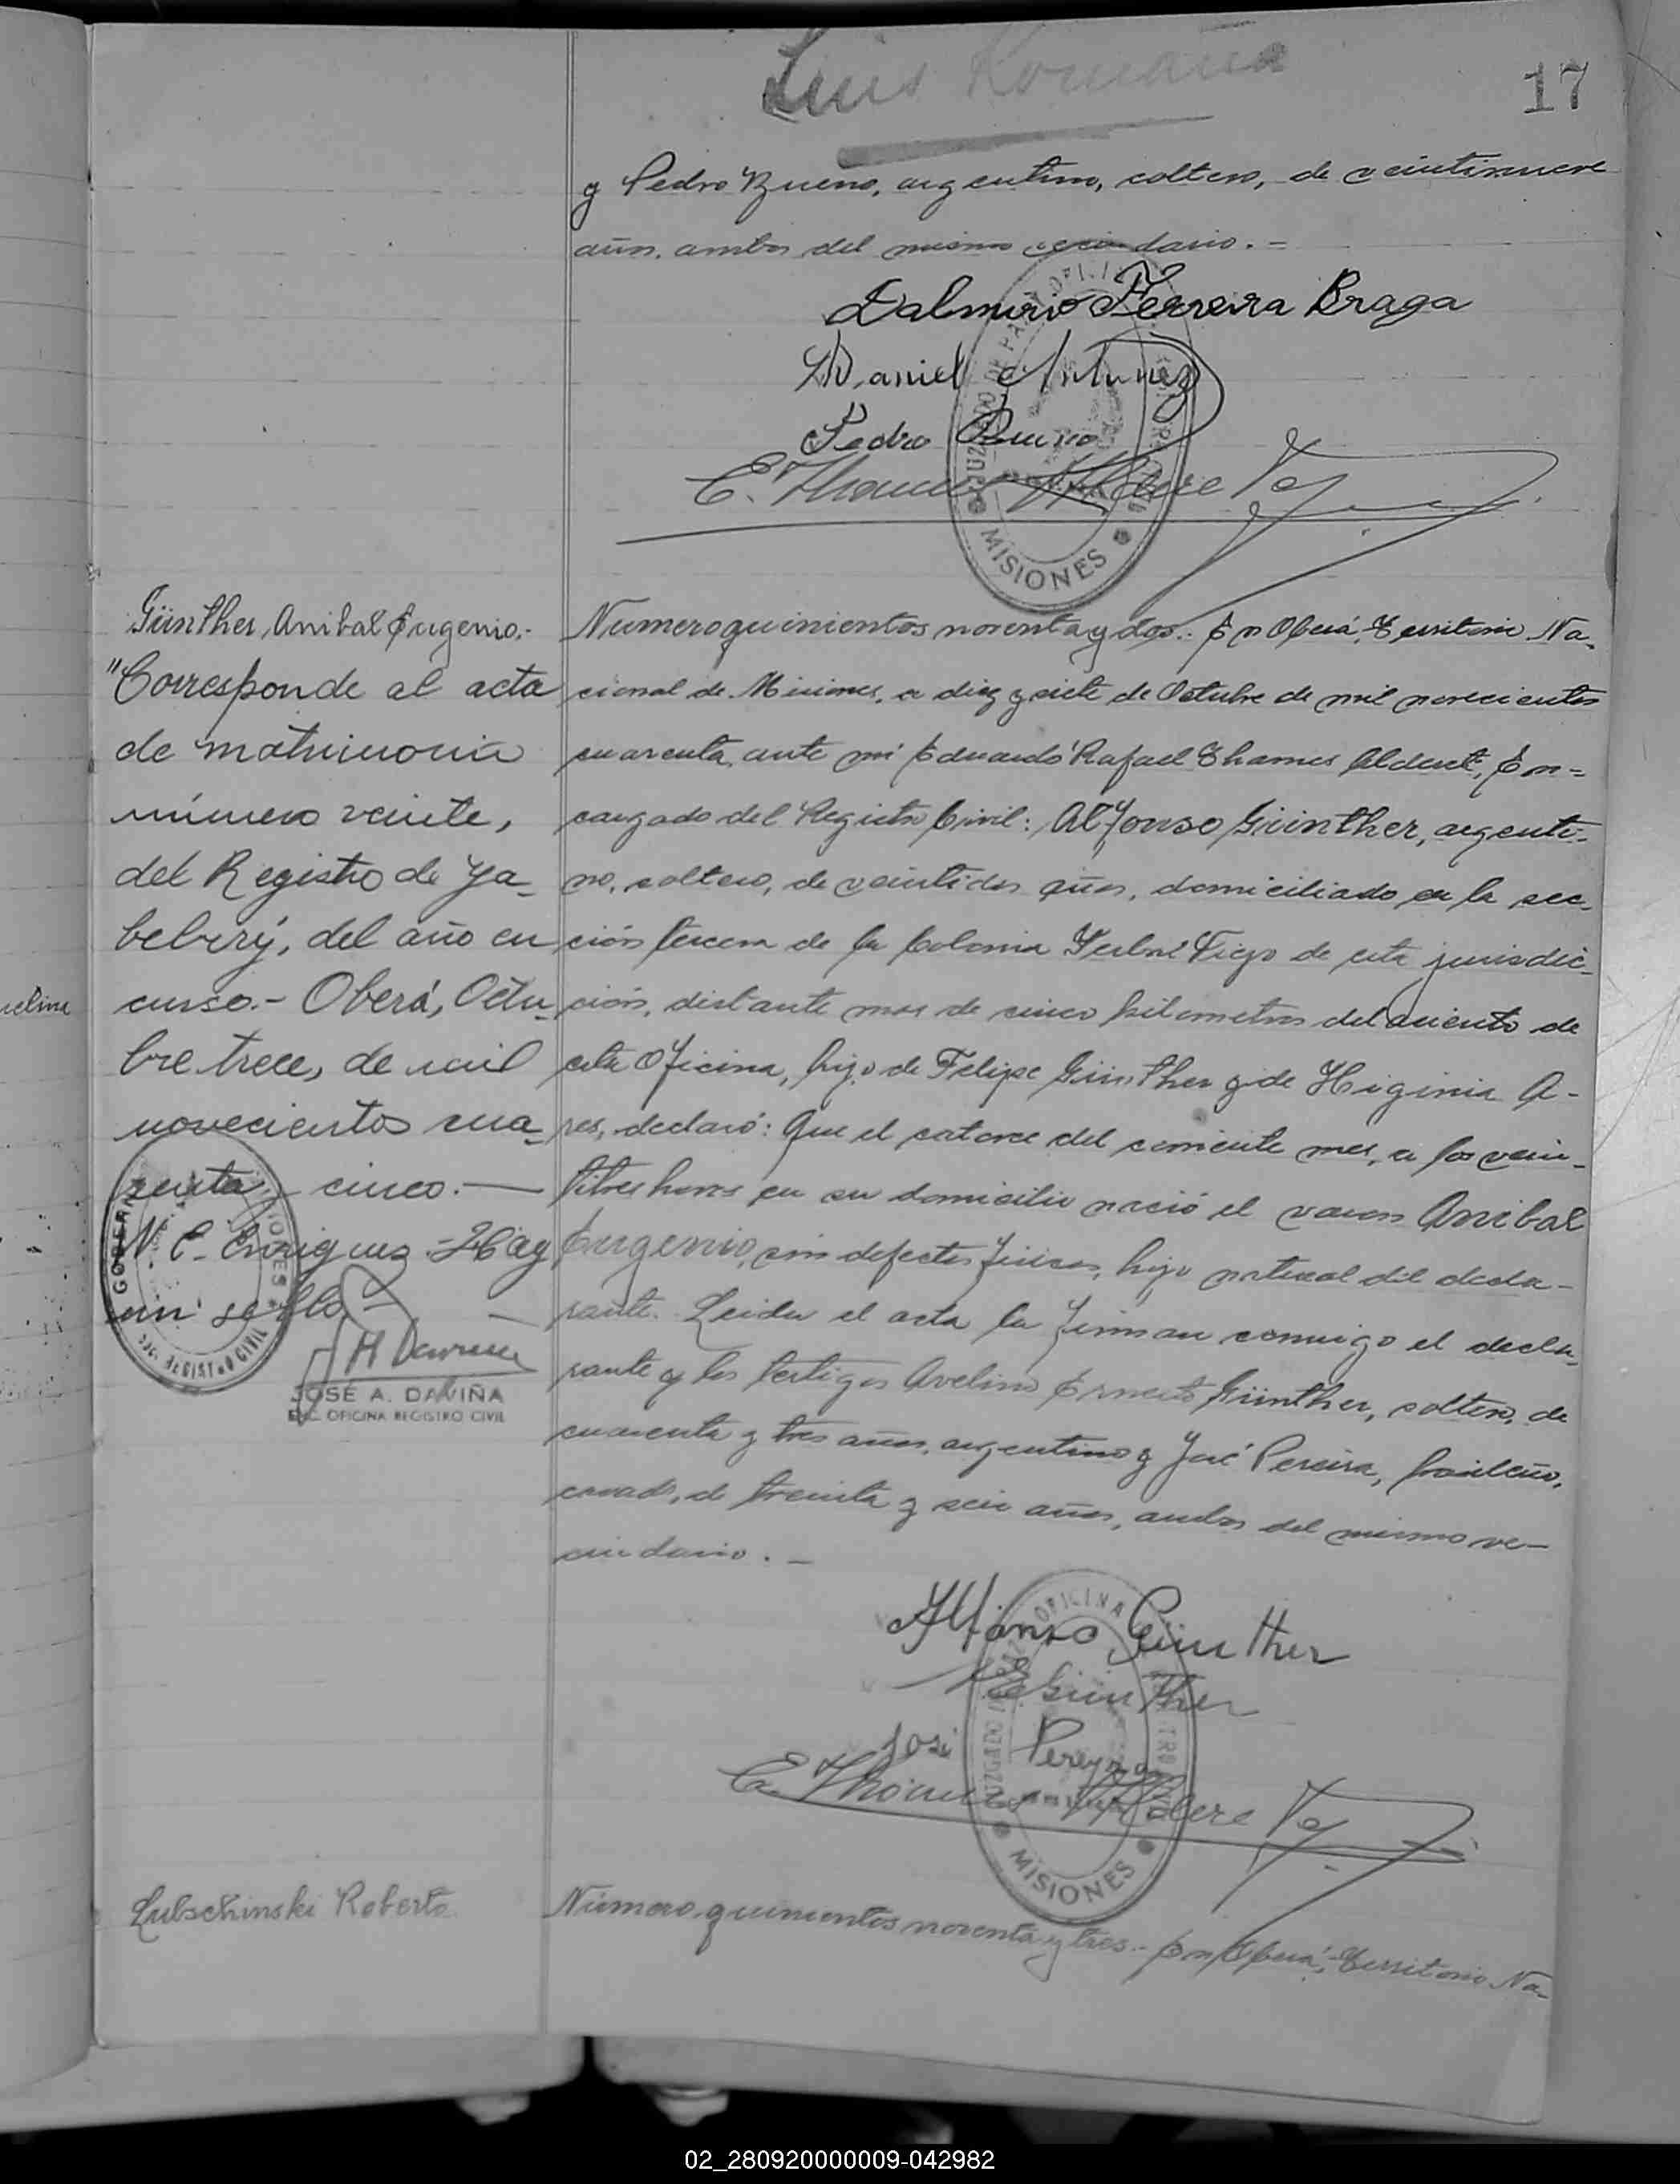 Luis Romana
17
y Pedro Bueno, argentino, soltero, de veintinueve
años, ambos del mismo vecindario.=
Dalmirio Ferreira Braga
Daniel Antunez
Pedro Bueno
E. Thames Alderete
MISIONES
Günther, Anibal Eugenio.-
Numero quinientos noventa y dos.- En Oberá, Territorio Na-
"Corresponde al acta
cional de Misiones, a diez y siete de Octubre de mil novecientos
de matrimonio
cuarenta, ante mi Eduardo Rafael Thames Alderete, En=
número veinte,
cargado del Registro Civil: Alfonso Günther, argenti-
del Registro de Ya-
no, soltero, de veintidos años, domiciliado en la sec-
bebirý, del año en
ción tercera de la Colonia Yerbal Viejo de esta jurisdic-
curso.- Oberá, Octu-
ción, distante mas de cinco kilometros del asiento de
bre trece, de mil
esta Oficina, hijo de Felipe Günther y de Higinia A-
novecientos cua-
res, declaró: Que el catorce del corriente mes, a las vein-
renta y cinco.—
titres horas en su domicilio nació el varon Anibal
N. C. Enriquez.- Hay
Eugenio, sin defectos fisicos, hijo natural del decla-
un sello.-
rante. Leida el acta la firman conmigo el decla-
rante y los testigos Avelino Ernesto Günther, soltero, de
JOSÉ A. DAVIÑA
ENC. OFICINA REGISTRO CIVIL
cuarenta y tres años, argentino y José Pereira, brasileño,
casado, de treinta y seis años, ambos del mismo ve-
cindario.-
Alfonso Günther
AEGünther
José Pereyra
E. Thames Alderete
MISIONES
Lubschinski Roberto
Número quinientos noventa y tres.- En Oberá, Territorio Na-
02_280920000009-042982